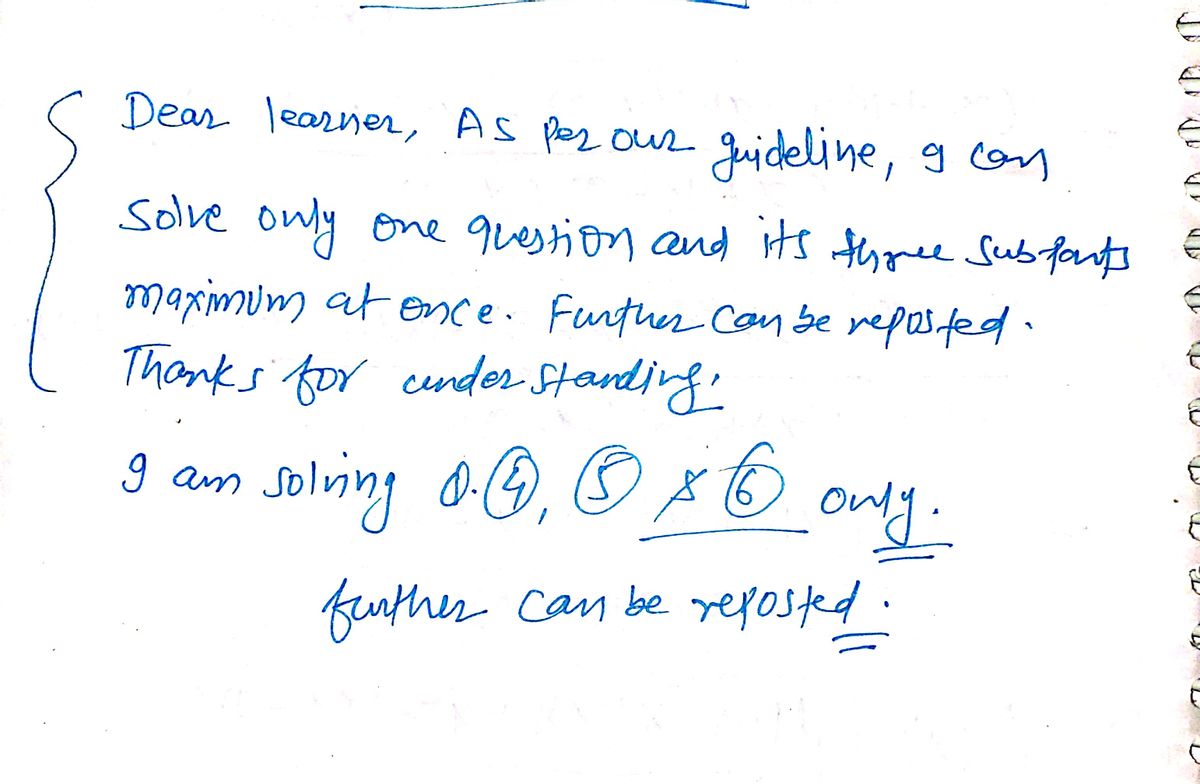 Dear learner, As per our guideline, I can
solve only one question and its three subparts
maximum at once. Further can be reposted.
Thanks for understanding.
I am solving Q.④, ⑤ & ⑥ only.
further can be reposted.